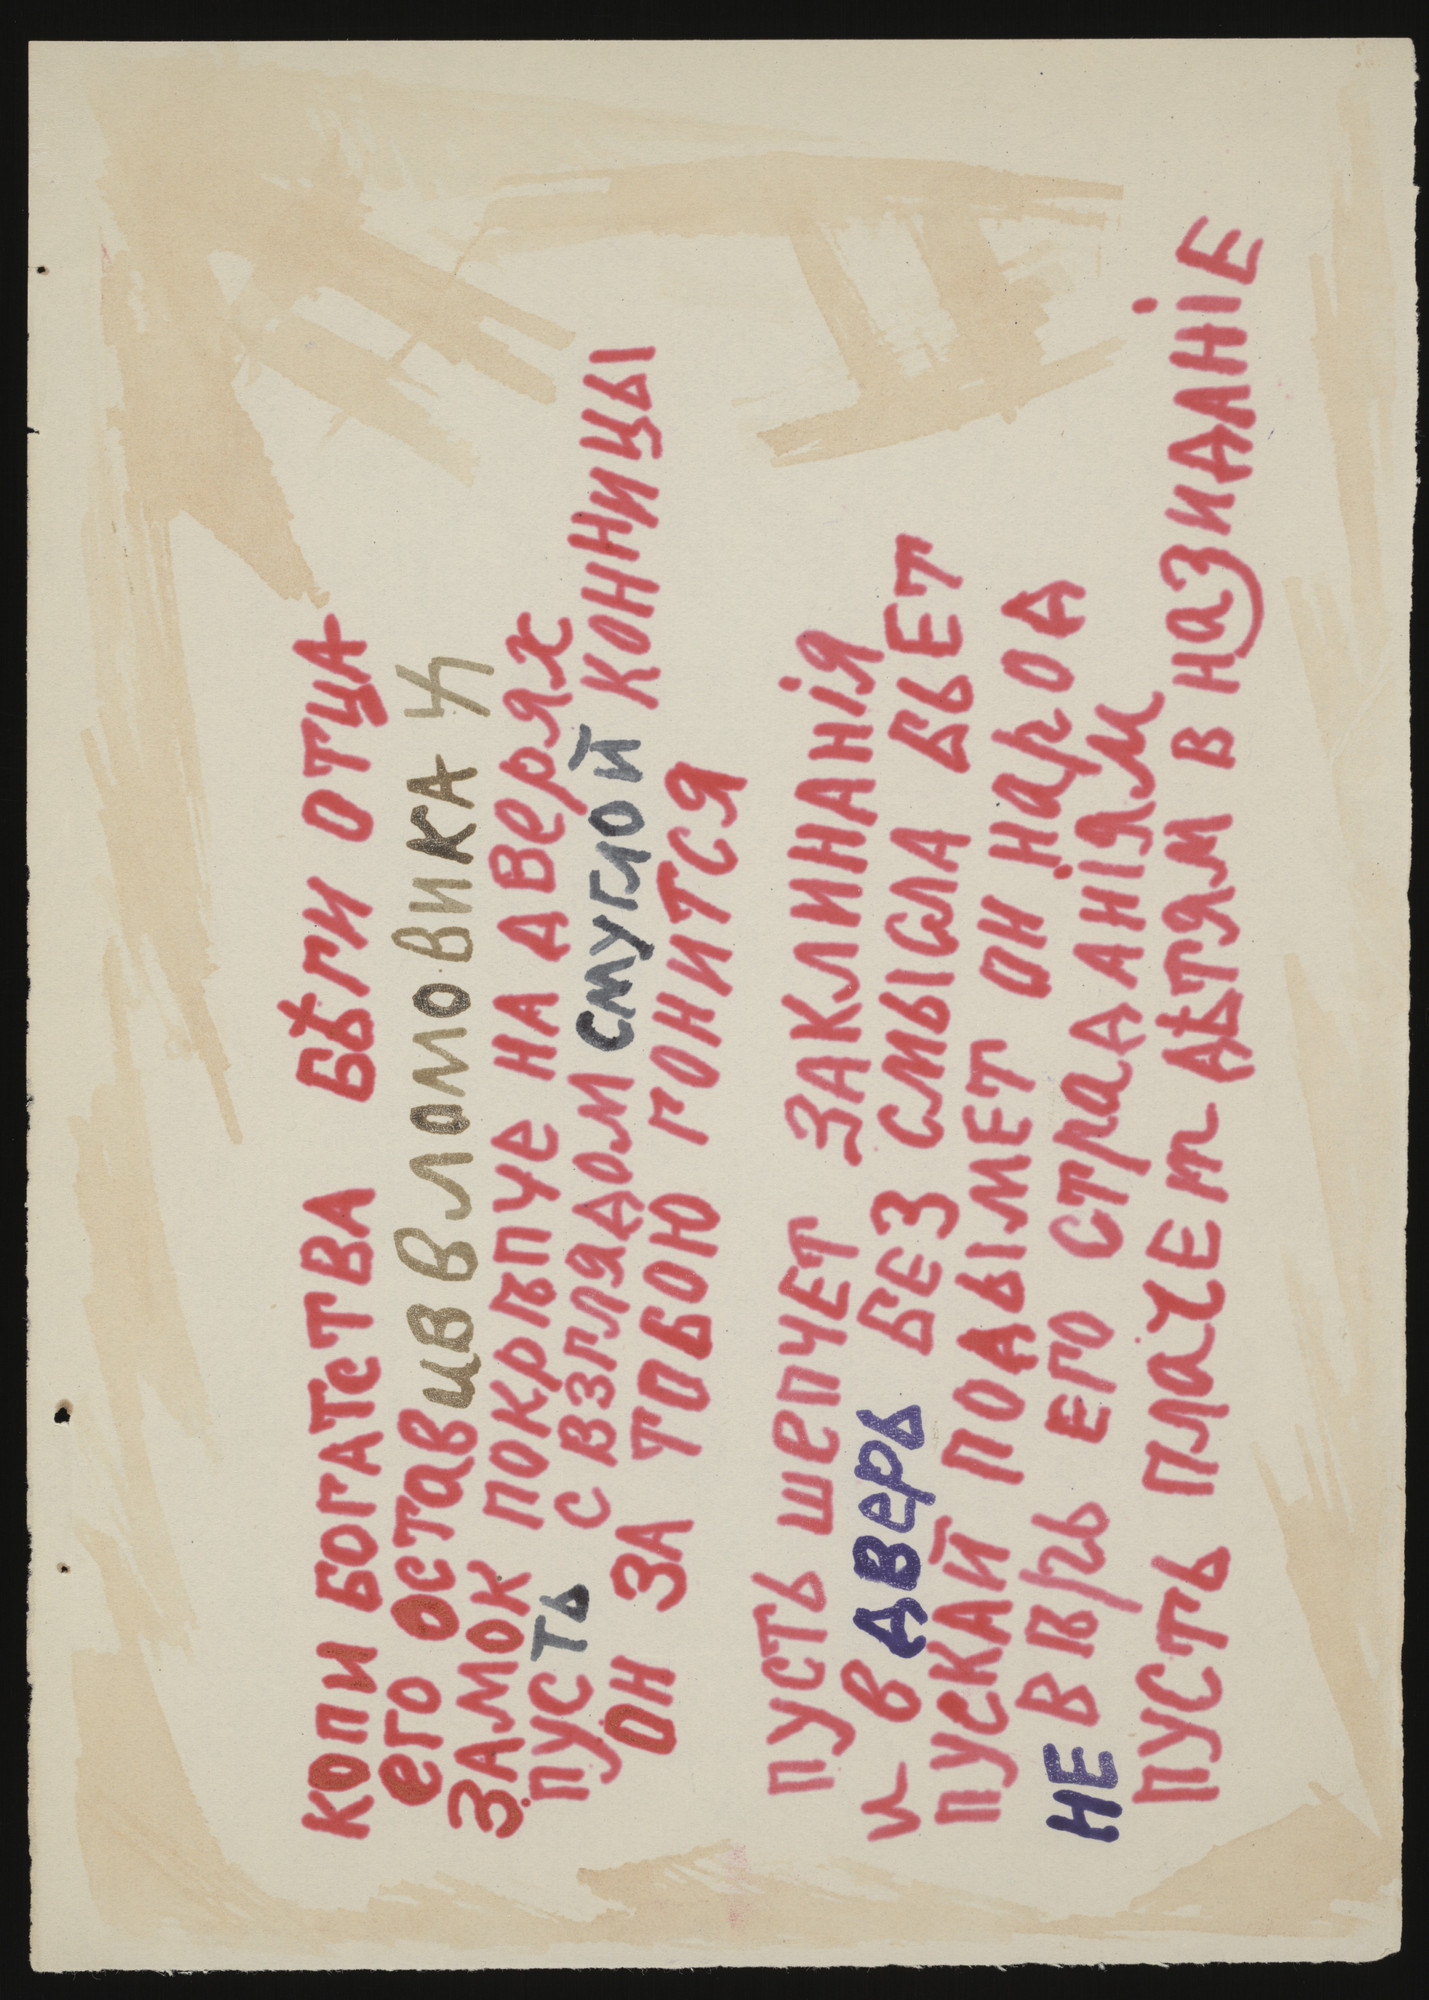 КОПИ БОГАТСТВА БѢГИ ОТЦА
еГО ОСТаВ ИВ ВЛОМОВИКА
ЗАМОК ПОКРѢПЧЕ НА ДВеРЯХ
ПУСТЬ С ВЗГЛЯДОМ СМУГЛОЙ КОННИЦЫ
ОН ЗА ТОБОЮ ГОНИТСЯ
ПУСТЬ ШеПЧЕТ ЗАКЛИНАНІЯ
И В ДВеРЬ БЕЗ СМЫСЛА БЬЕТ
ПУСКАЙ ПОДЫМЕТ ОН НаРОД
НЕ ВѢРЬ ЕГО СТРаДАНІЯМ
ПУСТЬ ПЛаЧЕТ ДѢТЯМ В НаЗИДАНІЕ